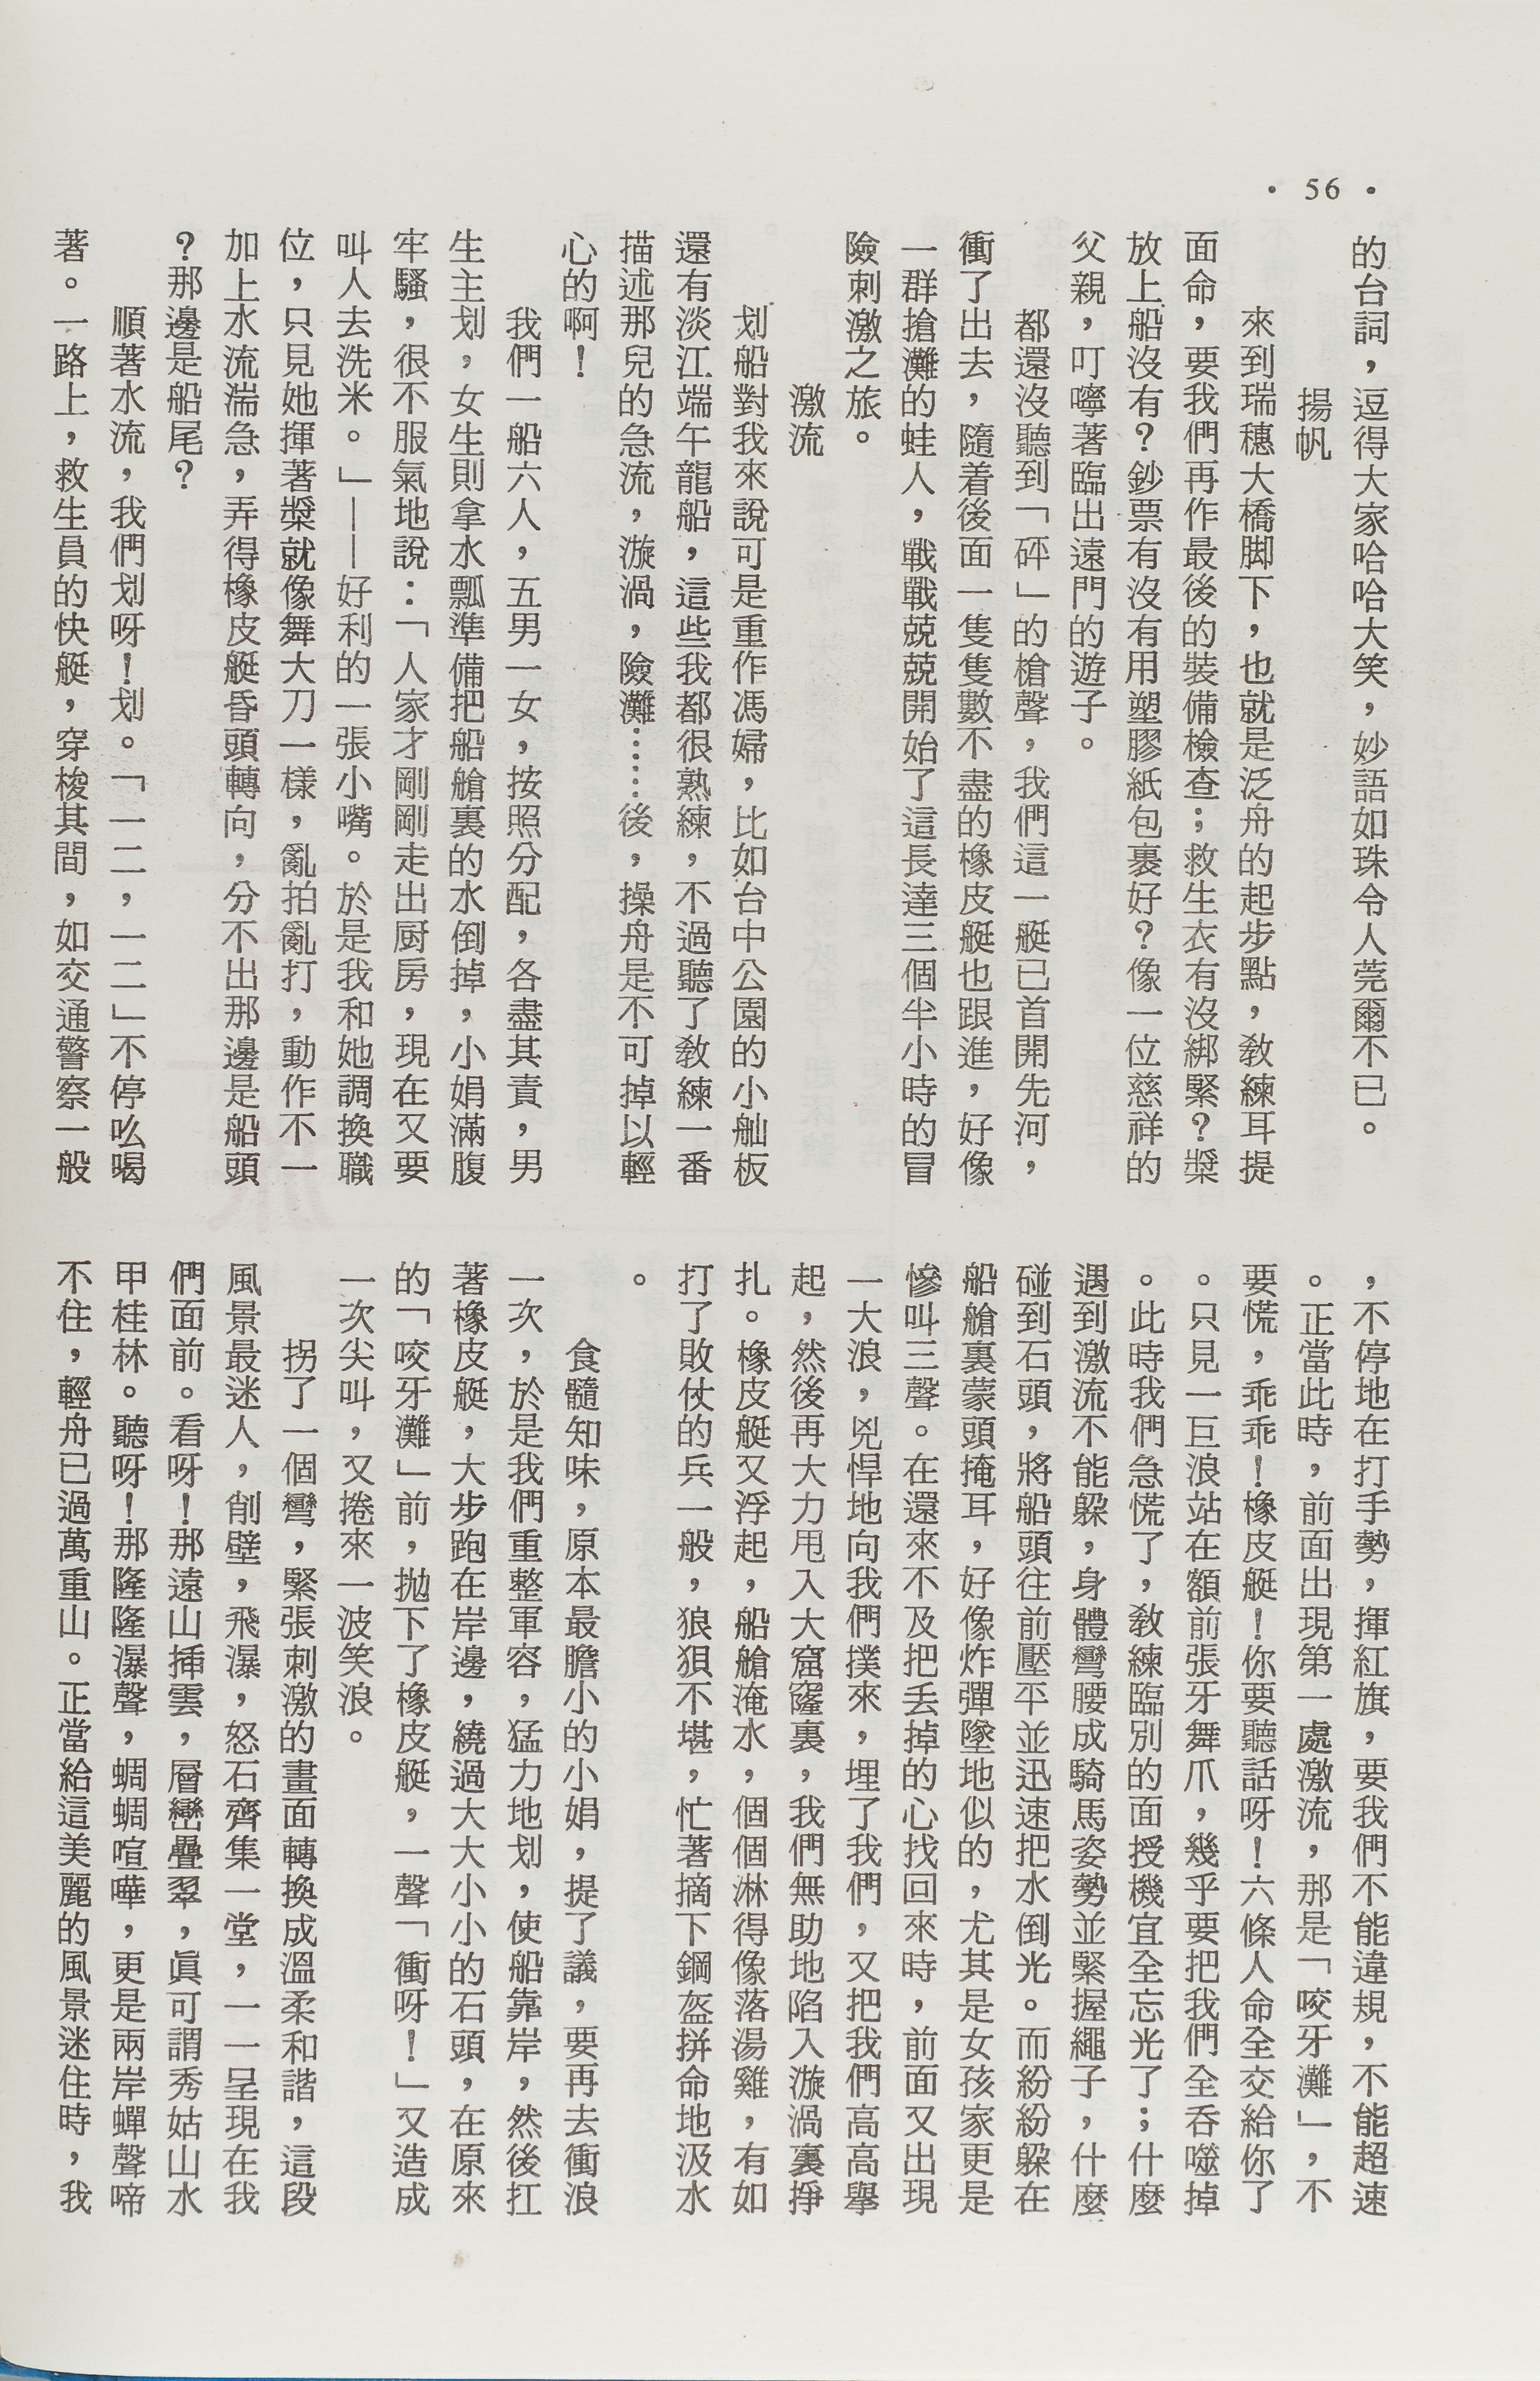 • 56 •
的台詞，逗得大家哈哈大笑，妙語如珠令人莞爾不已。
揚帆
來到瑞穗大橋脚下，也就是泛舟的起步點，教練耳提
面命，要我們再作最後的裝備檢查；救生衣有沒綁緊？槳
放上船沒有？鈔票有沒有用塑膠紙包裹好？像一位慈祥的
父親，叮嚀著臨出遠門的遊子。
都還沒聽到「砰」的槍聲，我們這一艇已首開先河，
衝了出去，隨着後面一隻隻數不盡的橡皮艇也跟進，好像
一群搶灘的蛙人，戰戰兢兢開始了這長達三個半小時的冒
險刺激之旅。
激流
划船對我來說可是重作馮婦，比如台中公園的小舢板
還有淡江端午龍船，這些我都很熟練，不過聽了教練一番
描述那兒的急流，漩渦，險灘……後，操舟是不可掉以輕
心的啊！
我們一船六人，五男一女，按照分配，各盡其責，男
生主划，女生則拿水瓢準備把船艙裏的水倒掉，小娟滿腹
牢騷，很不服氣地說：「人家才剛剛走出厨房，現在又要
叫人去洗米。」——好利的一張小嘴。於是我和她調換職
位，只見她揮著槳就像舞大刀一樣，亂拍亂打，動作不一
加上水流湍急，弄得橡皮艇昏頭轉向，分不出那邊是船頭
？那邊是船尾？
順著水流，我們划呀！划。「一二，一二」不停吆喝
著。一路上，救生員的快艇，穿梭其間，如交通警察一般
，不停地在打手勢，揮紅旗，要我們不能違規，不能超速
。正當此時，前面出現第一處激流，那是「咬牙灘」，不
要慌，乖乖！橡皮艇！你要聽話呀！六條人命全交給你了
。只見一巨浪站在額前張牙舞爪，幾乎要把我們全吞噬掉
。此時我們急慌了，教練臨別的面授機宜全忘光了；什麼
遇到激流不能躲，身體彎腰成騎馬姿勢並緊握繩子，什麼
碰到石頭，將船頭往前壓平並迅速把水倒光。而紛紛躲在
船艙裏蒙頭掩耳，好像炸彈墜地似的，尤其是女孩家更是
慘叫三聲。在還來不及把丟掉的心找回來時，前面又出現
一大浪，兇悍地向我們撲來，埋了我們，又把我們高高舉
起，然後再大力甩入大窟窿裏，我們無助地陷入漩渦裏掙
扎。橡皮艇又浮起，船艙淹水，個個淋得像落湯雞，有如
打了敗仗的兵一般，狼狽不堪，忙著摘下鋼盔拼命地汲水
。
食髓知味，原本最膽小的小娟，提了議，要再去衝浪
一次，於是我們重整軍容，猛力地划，使船靠岸，然後扛
著橡皮艇，大步跑在岸邊，繞過大大小小的石頭，在原來
的「咬牙灘」前，拋下了橡皮艇，一聲「衝呀！」又造成
一次尖叫，又捲來一波笑浪。
拐了一個彎，緊張刺激的畫面轉換成溫柔和諧，這段
風景最迷人，削壁，飛瀑，怒石齊集一堂，一一呈現在我
們面前。看呀！那遠山揷雲，層巒疊翠，眞可謂秀姑山水
甲桂林。聽呀！那隆隆瀑聲，蜩蜩喧嘩，更是兩岸蟬聲啼
不住，輕舟已過萬重山。正當給這美麗的風景迷住時，我